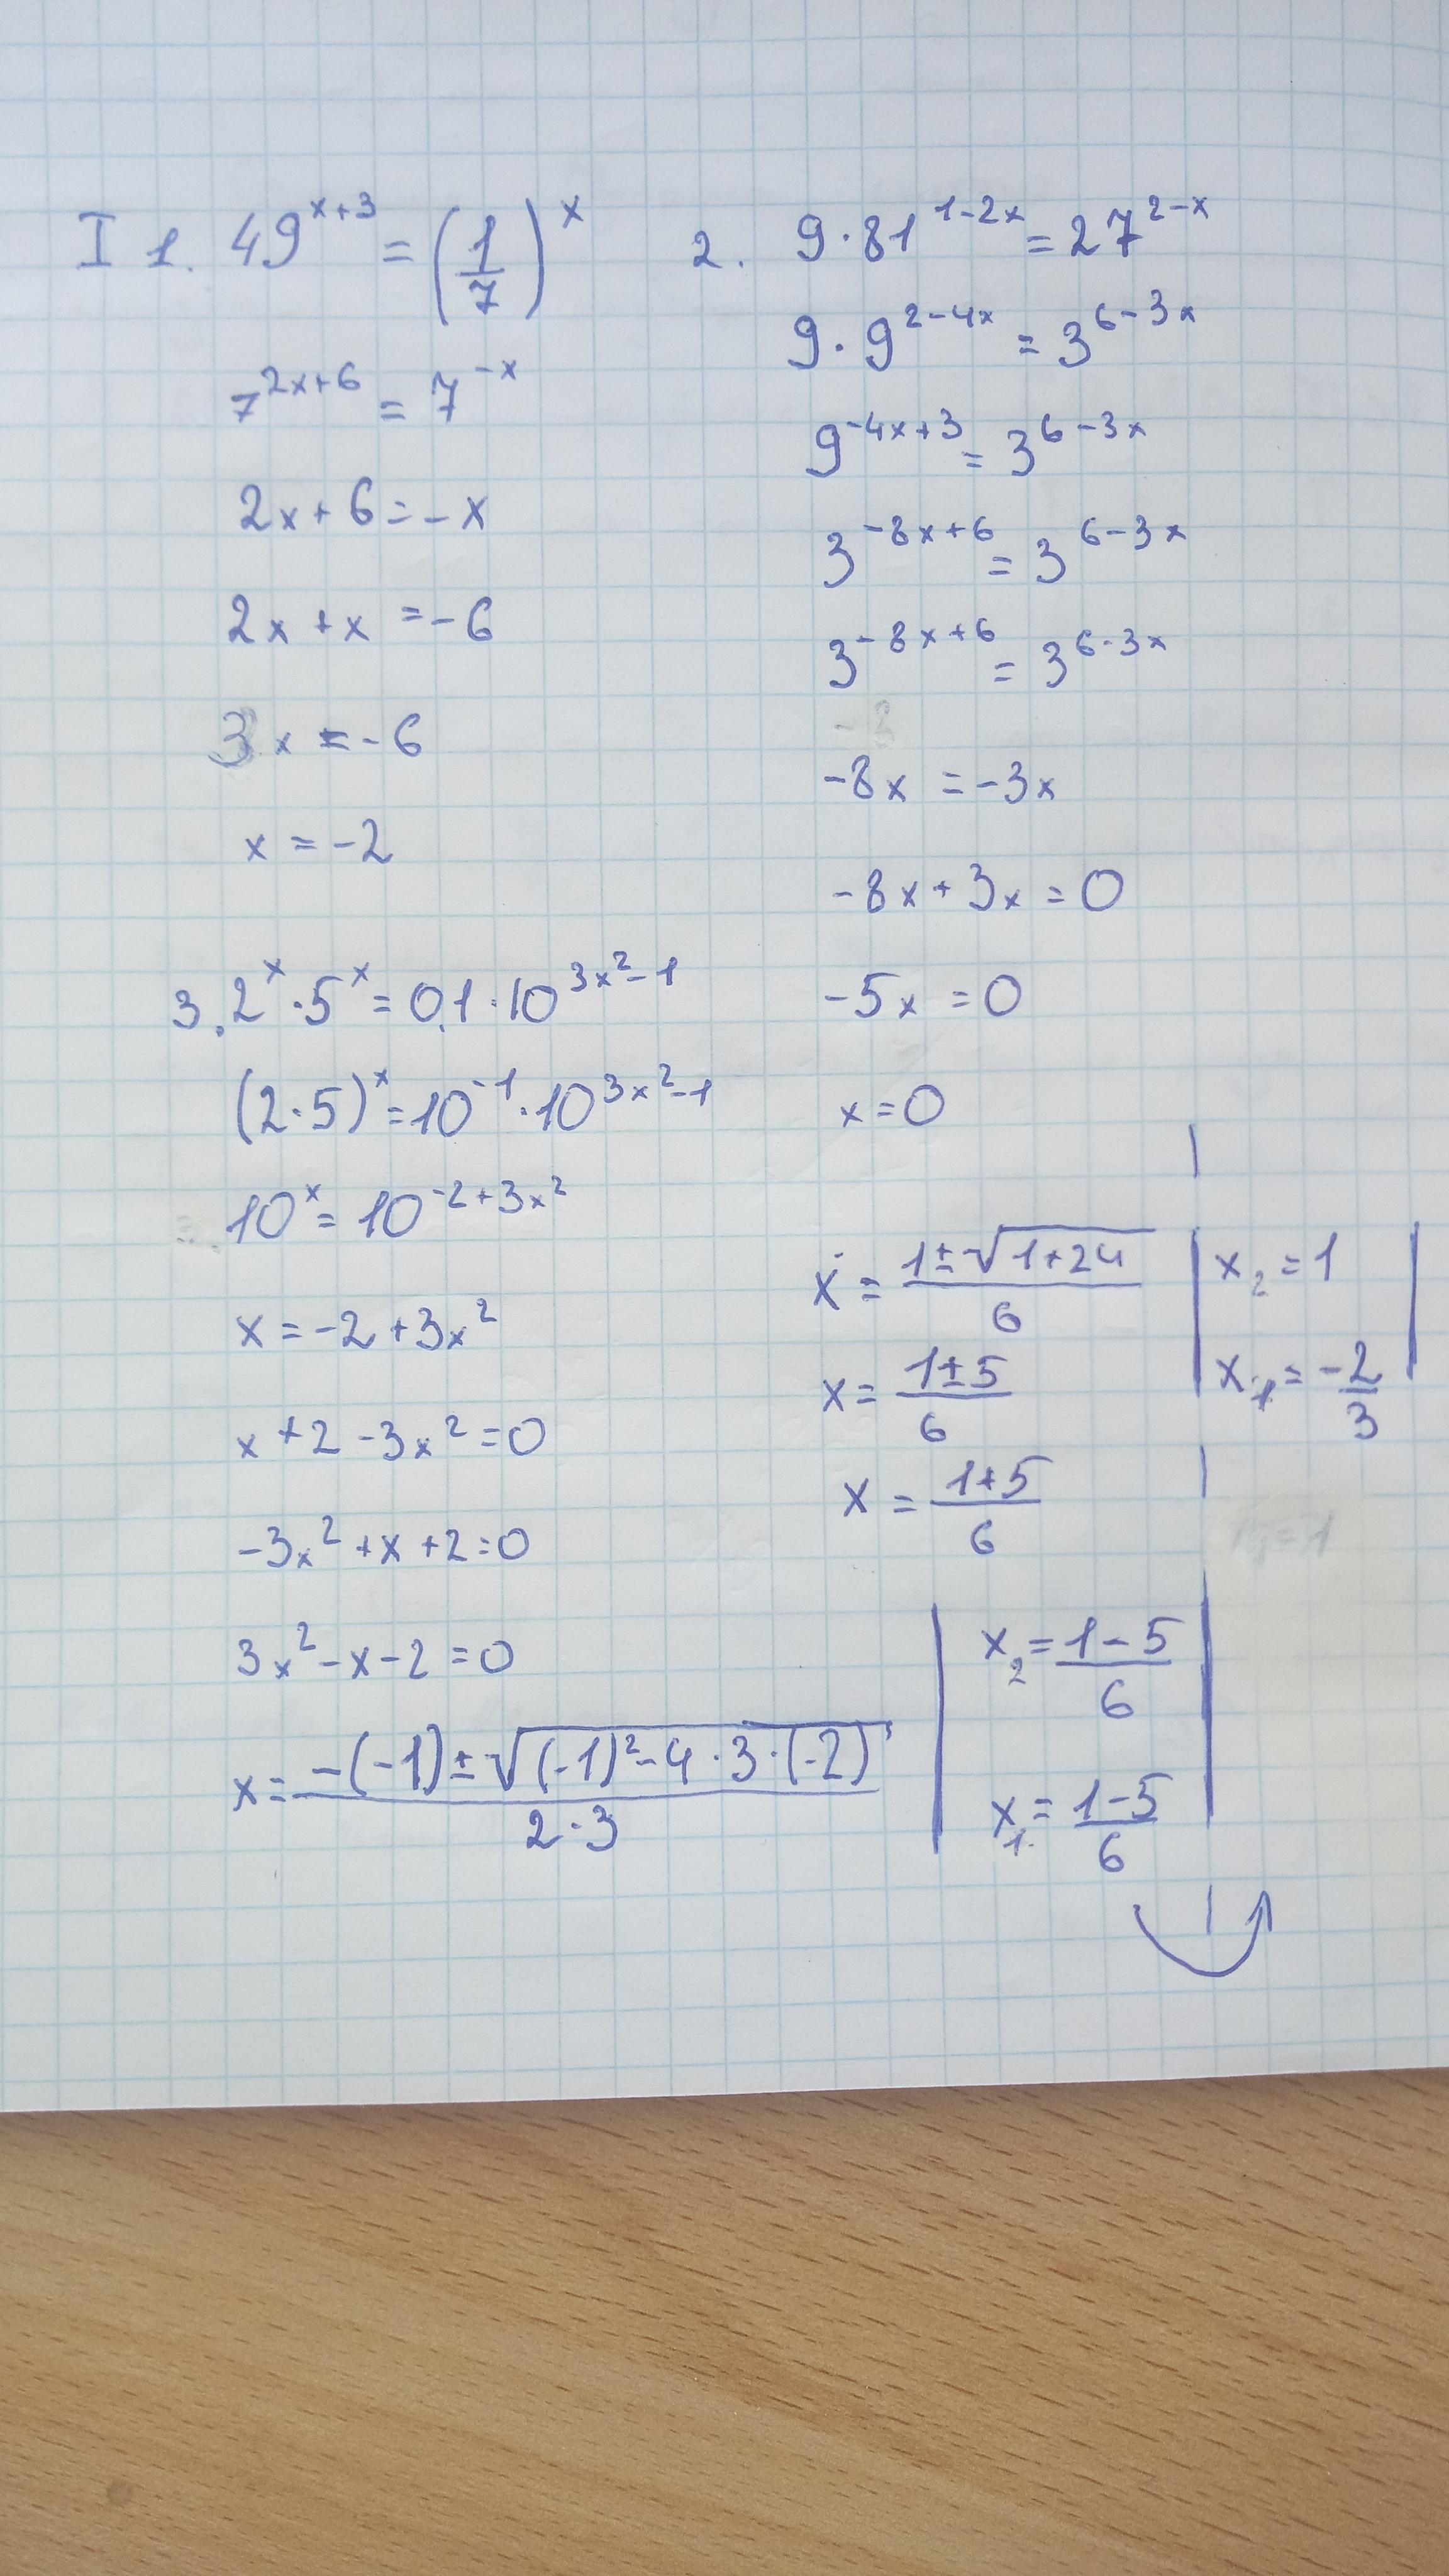 I 1. 49^(x+3) = (1/7)^x
7^(2x+6) = 7^(-x)
2x + 6 = -x
2x + x = -6
3x = -6
x = -2
2. 9·81^(1-2x) = 27^(2-x)
9·9^(2-4x) = 3^(6-3x)
9^(-4x+3) = 3^(6-3x)
3^(-8x+6) = 3^(6-3x)
3^(-8x+6) = 3^(6-3x)
-8x = -3x
-8x + 3x = 0
-5x = 0
x = 0
3. 2^x·5^x = 0,1·10^(3x²-1)
(2·5)^x = 10^(-1)·10^(3x²-1)
10^x = 10^(-2+3x²)
x = -2 + 3x²
x + 2 - 3x² = 0
-3x² + x + 2 = 0
3x² - x - 2 = 0
x = (-(-1) ± √((-1)² - 4·3·(-2))) / (2·3)
x = (1 ± √(1+24)) / 6
x = (1 ± 5) / 6
x = (1+5) / 6
x₂ = (1-5) / 6
x₁ = (1-5) / 6
x₂ = 1
x₁ = -2/3